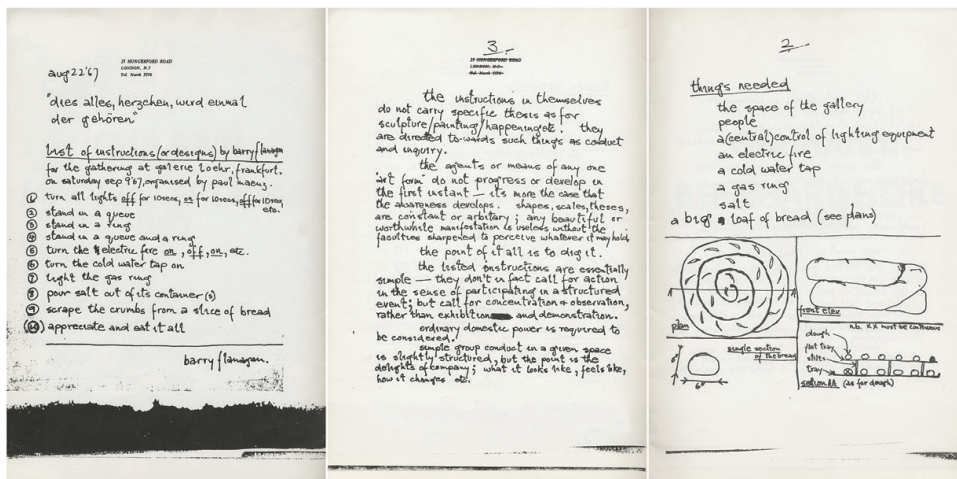 25 HUNGERFORD ROAD
LONDON, N.7
Tel. North 5276
aug 22'67
"dies alles, herzchen, wird einmal
der gehören"
list of instructions (or designs) by barry flanagan
for the gathering at galerie loehr, frankfurt,
on saturday sep 9'67, organised by paul maenz.
① turn all lights off for 10secs, on for 10secs, off for 10secs,
etc.
② stand in a queue
③ stand in a ring
④ stand in a queue and a ring
⑤ turn the electric fire on, off, on, etc.
⑥ turn the cold water tap on
⑦ light the gas ring
⑧ pour salt out of its container(s)
⑨ scrape the crumbs from a slice of bread
⑩ appreciate and eat it all
barry flanagan.
3.
25 HUNGERFORD ROAD
LONDON, N.7
the instructions in themselves
do not carry specific thesis as for
sculpture/painting/happening etc. they
are directed towards such things as conduct
and inquiry.
the agents or means of any one
'art form' do not progress or develop in
the first instant — it's more the case that
the awareness develops. shapes, scales, theses,
are constant or arbitary; any beautiful or
worthwhile manifestation is useless without the
faculties sharpened to perceive whatever it may hold.
the point of it all is to dig it.
the listed instructions are essentially
simple — they don't in fact call for action
in the sense of participating in a structured
event; but call for concentration & observation,
rather than exhibition and demonstration.
ordinary domestic power is required to
be considered.
simple group conduct in a given space
is slightly structured, but the point is the
delights of company; what it looks like, feels like,
how it changes etc.
2
things needed
the space of the gallery
people
a (central) control of lighting equipment
an electric fire
a cold water tap
a gas ring
salt
a big loaf of bread (see plans)
plan
front elev.
n.b. xx must be continuous
6"
6"
single section
of the bread
dough
flat tray
slits
tray
section AA (as for dough)